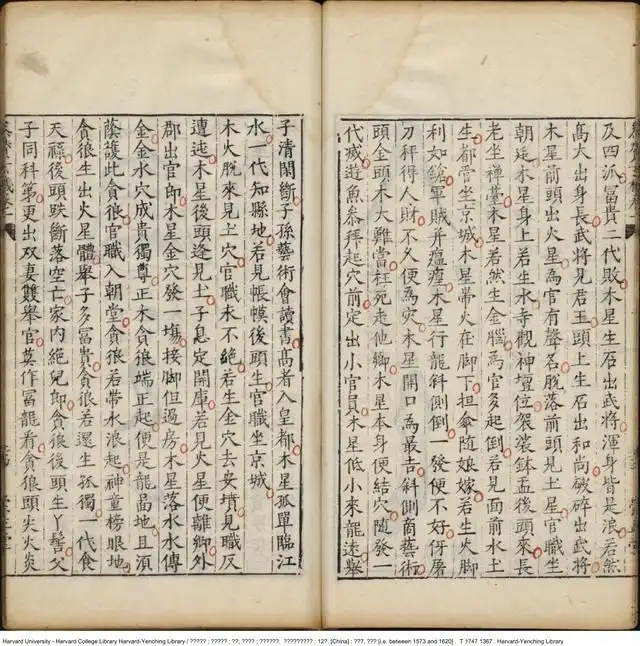 及四派冨貴二代敗木星生石出武將渾身皆是浪若然
髙大出身長武將見君王頭上生石出和尚破碎出武將
木星前頭出火星為官有聲名脫落前頭見土星官職坐
朝廷木星身上若生水寺觀神壇位袈裟鉢盂後頭來長
老坐禪臺木星若然生金腦為官多起倒若見面前水土
生都當坐京城木星帶火在脚下担傘随娘嫁若生火脚
利如鎗軍賊并瘟㾮木星行龍斜側倒一發便不好伢屠
刀秤得人財不久便為灾木星開口為最吉斜側商藝術
頭金頭木大難當枉死走他鄉木星本身便結穴随發一
代㓕遊魚叅拜起穴前定出小官員木星低小來龍遠舉
子清閑斷子孫藝術會讀書髙者入皇都木星孤單臨江
水一代知縣地若見帳幙後頭生官職坐京城
木火脫來見土穴官職未不絶若生金穴去安墳見職反
遭迍木星後頭逢見土子息定開庫若見火星便離鄉外
郡出官郎木星金穴發一塲接脚但過房木星落水水傳
金金水穴成貴獨尊正木貪狼端正起便是龍啚地且湏
蔭䕶此貪狼官職入朝堂貪狼若帶水浪起神童榜眼地
貪狼生出火星體舉子多冨貴貪狼若還生孤獨一代食
天禄後頭跌斷落空亡家内絶兒郎貪狼後頭生丫髻父
子同科第更出双妻雙舉官莫作冨龍看貪狼頭尖火炎
Harvard University - Harvard College Library Harvard-Yenching Library / ????? : ????? : ??, ???? ; ??????. ????????? : 12?. [China] : ???. ??? [i.e. between 1573 and 1620] . T 1747 1367 . Harvard-Yenching Library